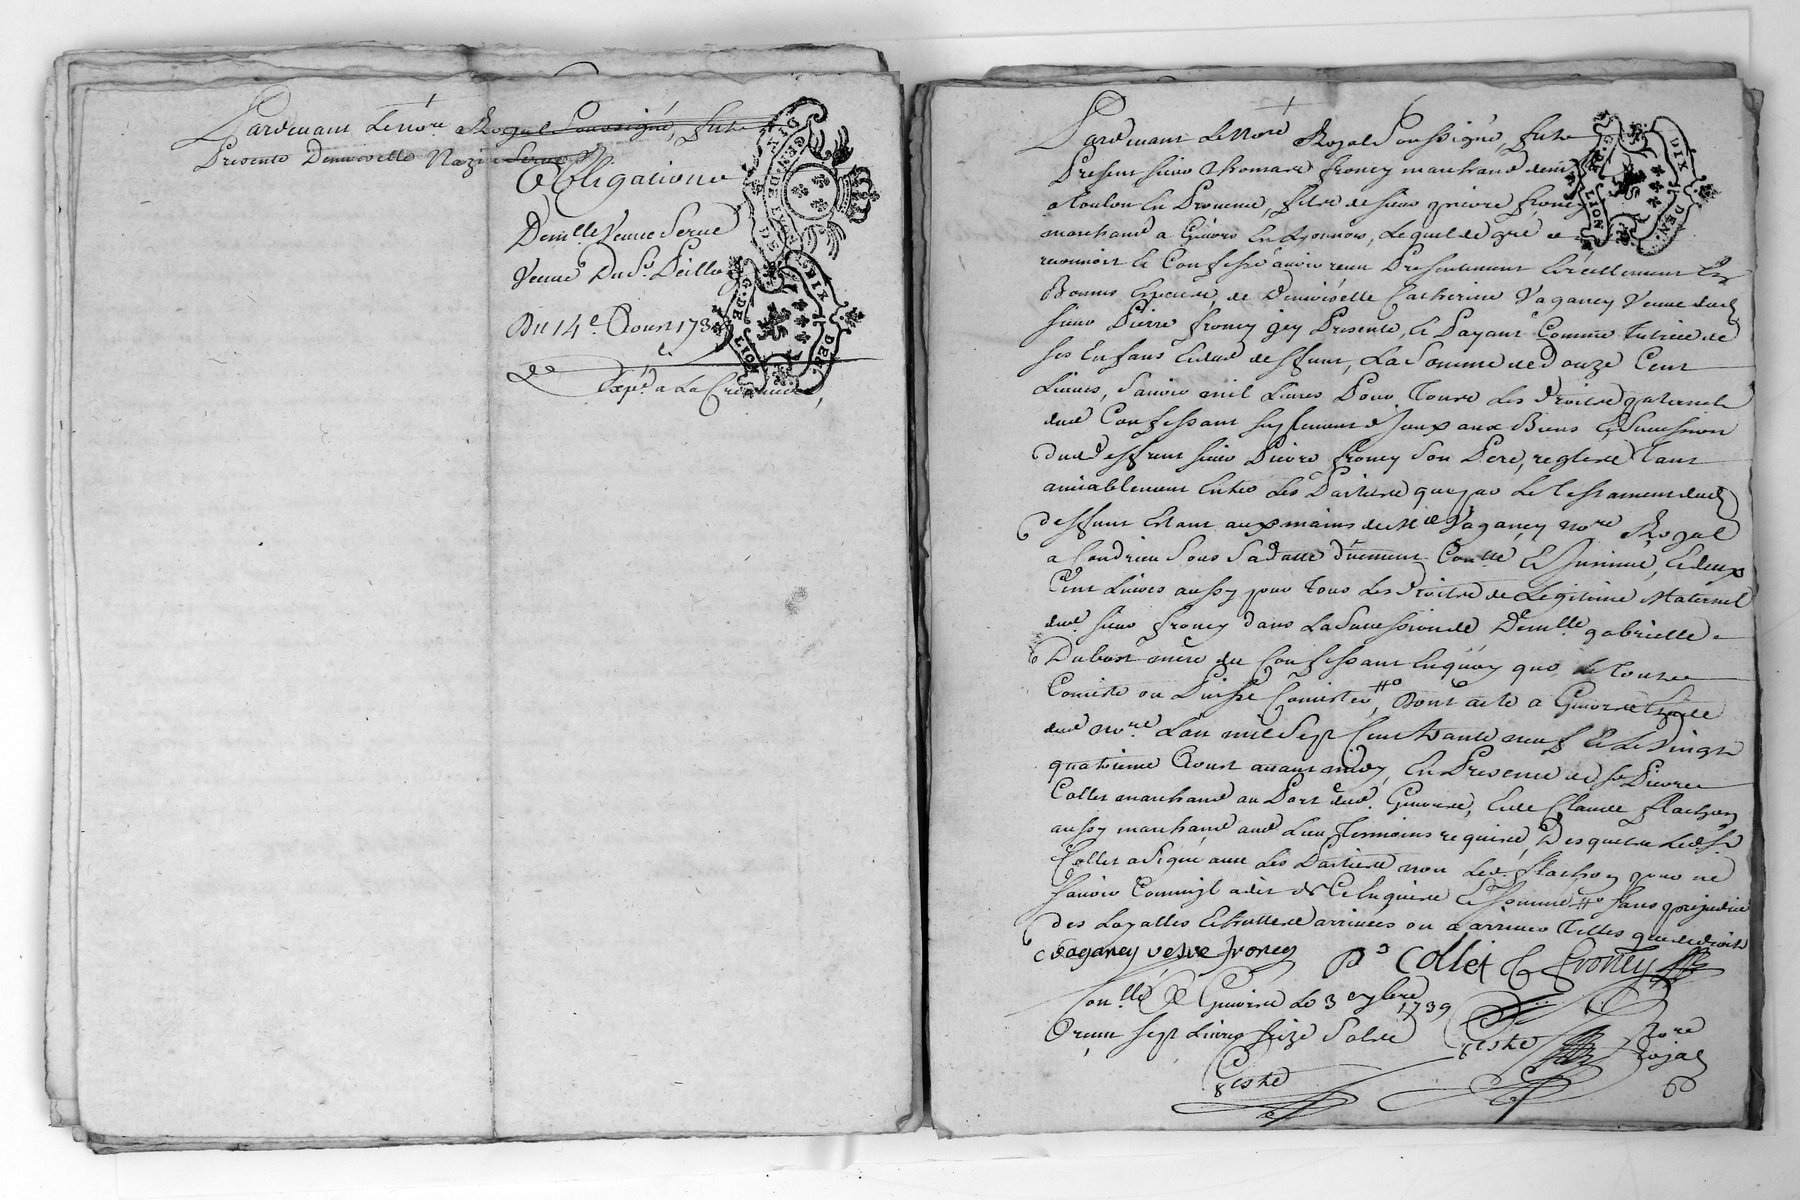 Pardevant Le No.re Royal Soussigné, fut
Presente Demoiselle
Obligation
Dem.lle Veuve Serve
Veuve Du S.r
Du 14.e Aoust 173
Exp.é a La
G. DE LION
DIX DEN.
G. DE LION
DIX DEN.
Pardevant Le No.re Royal Soussigné, fut
Present sieur Thomas froney marchand dem.t
a toulon En Provence, fils de sieur pierre froney
marchand a Givors En Lyonnois, Lequel de gré a
reconnoit et Confesse avoir receu Presentement et réellement En
Bonnes Especes, de Demoiselle Catherine Vaganey Veuve dud.
sieur Pierre froney icy Presente, et Payant Comme Tutrice de
ses Enfans et dud. deffunt, La Somme de Douze Cent
Livres, Savoir mil Livres Pour Tous Les droits paternels
dud. Confessant aux Biens et Succession
dud. deffunt sieur Pierre froney Son Pere, reglés Tant
amiablement Entre Les Parties que par Le Testament dud.
deffunt Estant aux mains de M.e Vaganey No.re Royal
a Condrieu Sous Sa datte düement Con.llé Et Insinué, et deux
Cent Livres aussy pour tous Les droits de Legitime Maternel
dud. sieur froney dans La Succession de Dem.lle gabrielle
Dubost mere du Confessant En quoy que le tout
Consiste ou Puisse Consister, Dont acte a Givors Etude
dud. No.re L'an mil Sept Cent trante neuf Et Le Vingt
quatrieme Aoust avant midy, En Presence de S.r Pierre
Collet marchand au Port dud. Givors, Et de Claude flachon
aussy marchand aud. Lieu Temoins requis, Desquels Led. S.r
Collet a Signé avec Les Parties non Led. flachon pour ne
Savoir Comme il a dit de Ce Enquis Et Sommé sans prejudice
des Loyalles arrivées ou a arriver Telles que de droit
C vaganey veuve froney P.re Collet T froney
Con.llé a Givors Le 3 7bre 1739
Receu sept Livres seize Sols
No.re
royal